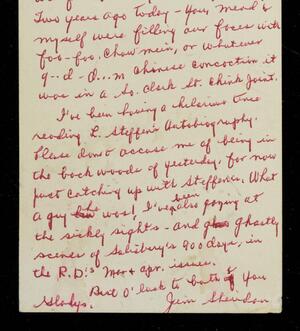 Two years ago today - Your Mend &
myself were filling our faces with
foo-foo, Chow mein, or whatever
g--d - d...m Chinese concoction it
was in a So. Clark St. Chink Joint.
I've been having a hilarious time
reading L. Steffens Autobiography.
Please don't accuse me of being in
the back woods of yesterday, for now
just catching up with Steffens. What
a guy he was! I've also been gazing at
the sickly sights - and ghastly
scenes of Salisbury's 900 days, in
the R.D.'s Mar & Apr. issues.
Best O' luck to both of You
Gladys.
Jim Sheridan